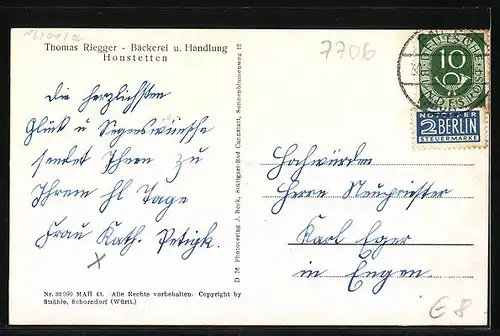 Thomas Riegger - Bäckerei u. Handlung
Honstetten
7706
Die herzlichsten
Glück u Segenswünsche
sendet Ihnen zu
Ihrem hl Tage
Frau Kath. Petigk.
x
Nr. 33 990 MAß 41. Alle Rechte vorbehalten. Copyright by
Stähle, Schorndorf (Württ.)
D 76 Photoverlag J. Beck, Stuttgart-Bad Cannstatt, Sonnenblumenweg 12
DEUTSCHE
BUNDESPOST
10
NOTOPFER
2 BERLIN
STEUERMARKE
Hochwürden
Herrn Neupriester
Karl Eger
in Engen.
€8